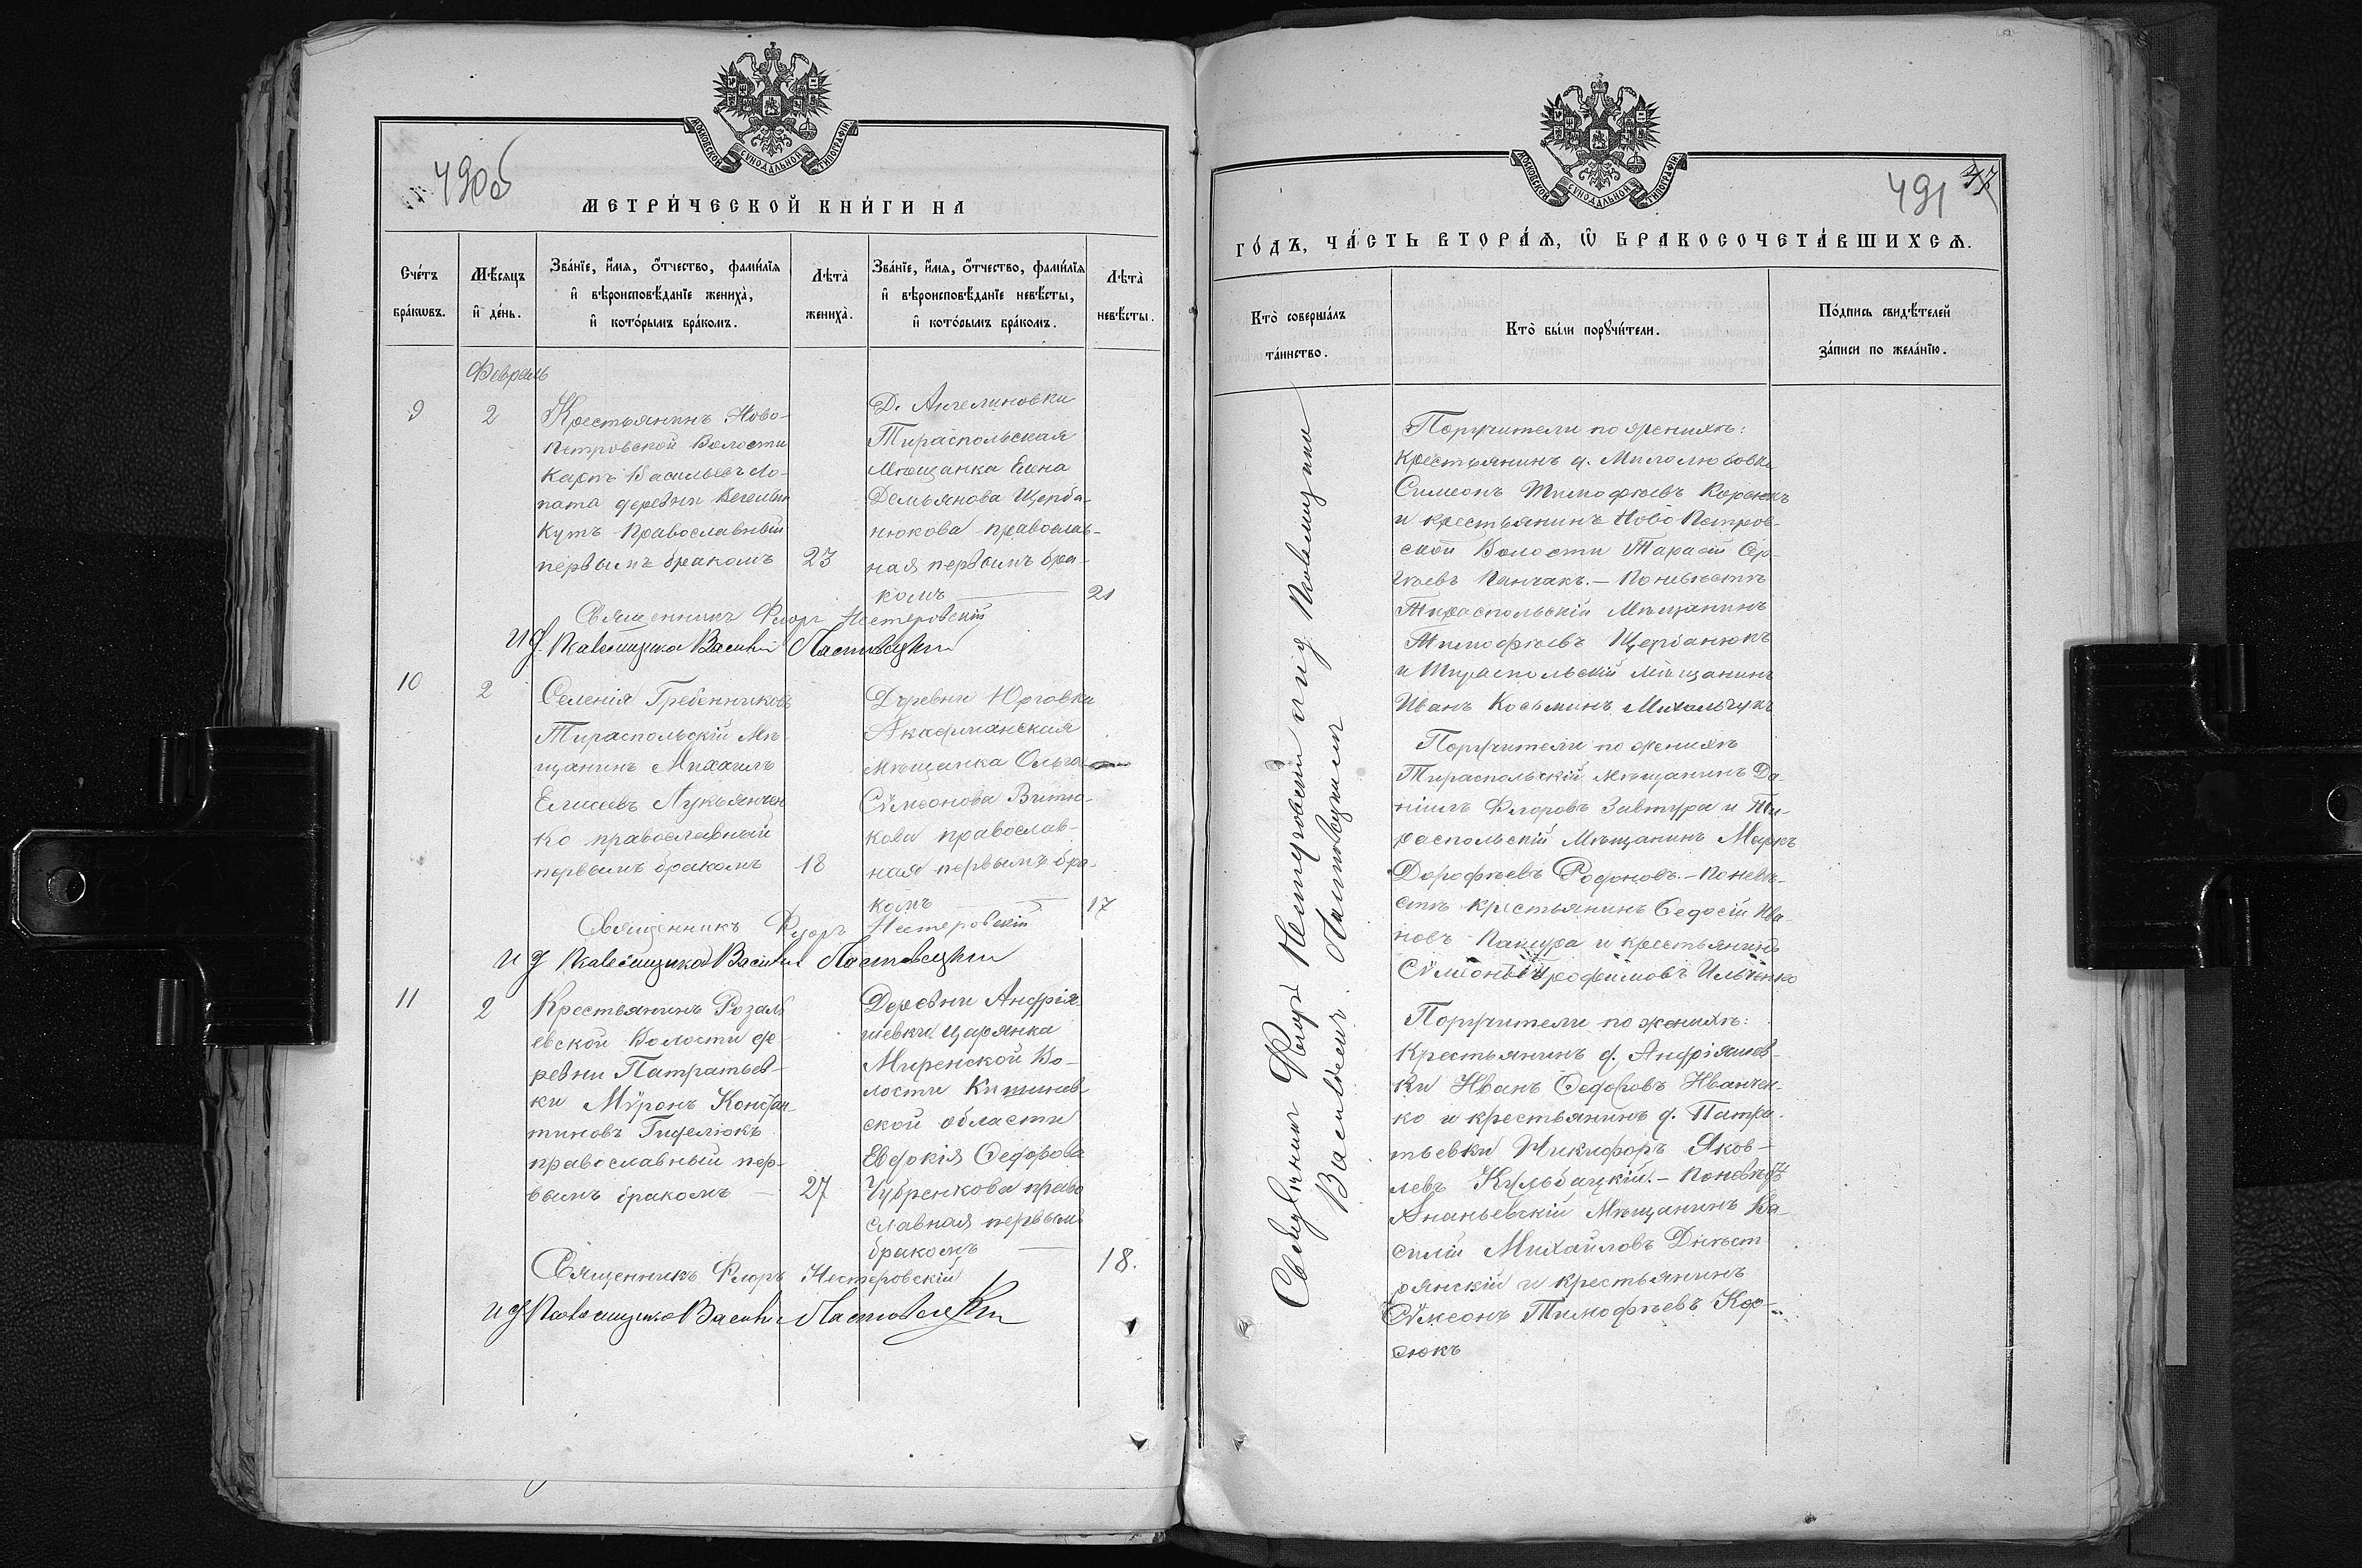 МОСКОВСКОЙ СѴНОДАЛЬНОЙ ТИПОГРАФІИ
490об
МЕТРИ́ЧЕСКОЙ КНИ́ГИ НА
Сче́тъ бра́кѡвъ.
Мѣ́сяцъ и҆ де́нь.
Зва́нїе, и҆́мя, ѻ҆́тчество, фами́лїя
и҆ вѣроисповѣ́данїе жениха̀,
и҆ кото́рымъ бра́комъ.
Лѣта̀ жениха̀.
Зва́нїе, и҆́мя, ѻ҆́тчество, фами́лїя
и҆ вѣроисповѣ́данїе невѣ́сты,
и҆ кото́рымъ бра́комъ.
Лѣта̀ невѣ́сты.
Февраль
9
2
Крестьянинъ Ново-
петровской Волости
Карпъ Васильевъ Ло-
пата деревни
Кутъ Православный
первымъ бракомъ
23
Д. Ангелиновки
Тираспольская
Мѣщанка Елена
Демьянова Щерба-
нюкова православ-
ная первымъ бра-
комъ
21
Священникъ Флоръ Нестеровскій
И д Псаломщика Василій Ластовецкій
10
2
Селенія Гребенниковъ
Тираспольскій Мѣ-
щанинъ Михаилъ
Елисеевъ Лукьянчен
ко православный
первымъ бракомъ
18
Деревни Юрговки
Аккерманская
Мѣщанка Ольга
Сѵмеонова Витю-
кова православ-
ная первымъ бра-
комъ
17
Священникъ Флоръ Нестеровскій
И д Псаломщика Василій Ластовецкій
11
2
Крестьянинъ Розаль
евской Волости де
ревни Патратьев-
ки Мѵронъ Констан
тиновъ Гиделюкъ
православный пер-
вымъ бракомъ
27
Деревни Андрія-
шевки Царянка
Миренской Во-
лости Кишинев-
ской области
Евдокія Ѳедорова
Чубренкова право
славная первымъ
бракомъ
18.
Священникъ Флоръ Нестеровскій
И д Псаломщика Василій Ластовецкій
МОСКОВСКОЙ СѴНОДАЛЬНОЙ ТИПОГРАФІИ
491 47
ГО́ДЪ, ЧА́СТЬ ВТОРА́Ѧ, Ѿ БРАКОСОЧЕТА́ВШИХСѦ.
Кто̀ соверша́лъ
та́инство.
Кто̀ бы́ли порꙋчи́тели.
По́дпись свидѣ́телей
за́писи по жела́нїю.
Священникъ Флоръ Нестеровскій и и д Псаломщика
Василій Ластовецкій
Поручители по женихѣ:
Крестьянинъ д. Милолюбовки
Симеонъ Тимофѣевъ Корсюкъ
и крестьянинъ Ново Петров-
ской Волости Тарасій Сер-
гѣевъ Панчакъ.- По невѣстѣ
Тираспольскій Мѣщанинъ
Тимофѣевъ Щербанюкъ
и Тираспольскій мѣщанинъ
Иванъ Косьминъ Михальчукъ
Поручители по женихѣ
Тираспольскій Мѣщанинъ Да
ніилъ Флоровъ Завтура и Ти-
распольскій Мѣщанинъ Маркъ
Дорофѣевъ Родоновъ.- По невѣ-
стѣ крестьянинъ Ѳедосій Ива-
новъ и крестьянинъ
Сѵмеонъ Трофимовъ Ильченко
Поручители по женихѣ:
Крестьянинъ д. Андріяшев-
ки Иванъ Ѳедоровъ Иванчен-
ко и крестьянинъ д. Патра-
тьевки Никифоръ Яков-
левъ Кульбацкій.- По невѣстѣ
Ананьевскій Мѣщанинъ Ва-
силій Михайловъ Днѣст
рянскій и крестьянинъ
Сѵмеонъ Тимофѣевъ Кор-
сюкъ